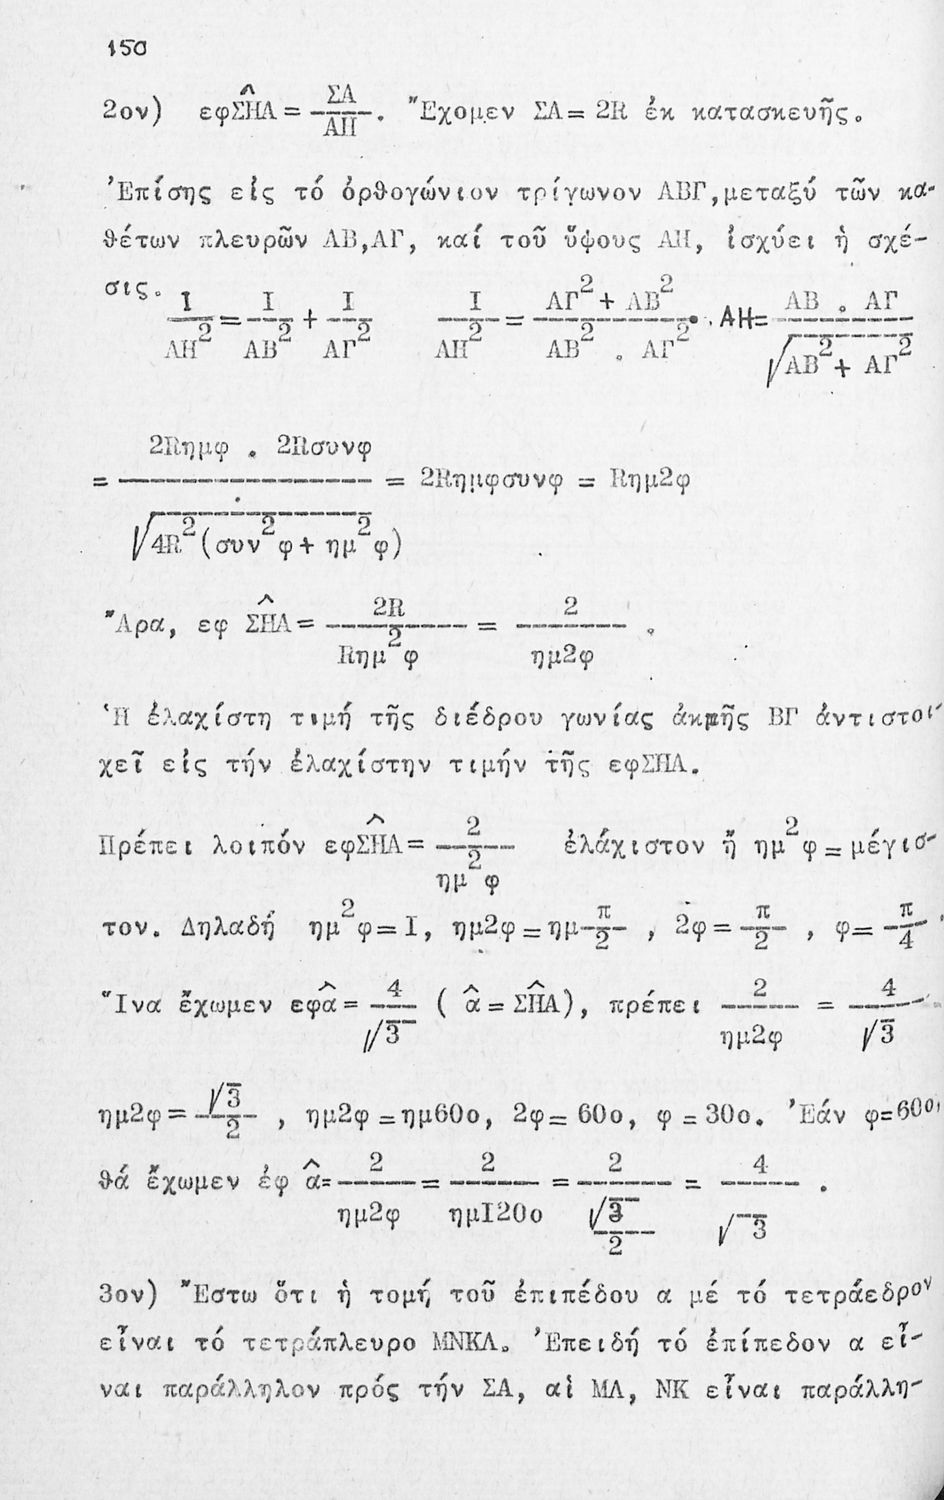 150
2ον) εφΣΗ̂Α = ΣΑ/ΑΗ. Ἔχομεν ΣΑ = 2R ἐκ κατασκευῆς.
Ἐπίσης εἰς τό ὀρθογώνιον τρίγωνον ΑΒΓ, μεταξύ τῶν κα-
θέτων πλευρῶν ΑΒ, ΑΓ, καί τοῦ ὕψους ΑΗ, ἰσχύει ἡ σχέ-
σις. 1/ΑΗ² = Ι/ΑΒ² + Ι/ΑΓ² Ι/ΑΗ² = (ΑΓ² + ΑΒ²)/(ΑΒ² . ΑΓ²). ΑΗ = (ΑΒ . ΑΓ)/√(ΑΒ² + ΑΓ²)
= (2Rημφ . 2Rσυνφ)/√(4R²(συν²φ + ημ²φ)) = 2Rημφσυνφ = Rημ2φ
Ἄρα, εφ ΣΗ̂Α = 2R/Rημ²φ = 2/ημ2φ .
Ἡ ἐλαχίστη τιμή τῆς διέδρου γωνίας ἀκμῆς ΒΓ ἀντιστοι-
χεῖ εἰς τήν ἐλαχίστην τιμήν τῆς εφΣΗΑ.
Πρέπει λοιπόν εφΣΗ̂Α = 2/ημ²φ ἐλάχιστον ἤ ημ²φ = μέγισ-
τον. Δηλαδή ημ²φ = Ι, ημ2φ = ημ π/2 , 2φ = π/2 , φ = π/4 .
Ἵνα ἔχωμεν εφα̂ = 4/√3 ( α̂ = ΣΗ̂Α), πρέπει 2/ημ2φ = 4/√3
ημ2φ = √3/2 , ημ2φ = ημ60ο, 2φ = 60ο, φ = 30ο. Ἐάν φ=60ο,
θά ἔχωμεν ἐφ α̂ = 2/ημ2φ = 2/ημΙ20ο = 2/(√3/2) = 4/√3 .
3ον) Ἔστω ὅτι ἡ τομή τοῦ ἐπιπέδου α μέ τό τετράεδρον
εἶναι τό τετράπλευρο ΜΝΚΛ. Ἐπειδή τό ἐπίπεδον α εἶ-
ναι παράλληλον πρός τήν ΣΑ, αἱ ΜΛ, ΝΚ εἶναι παράλλη-